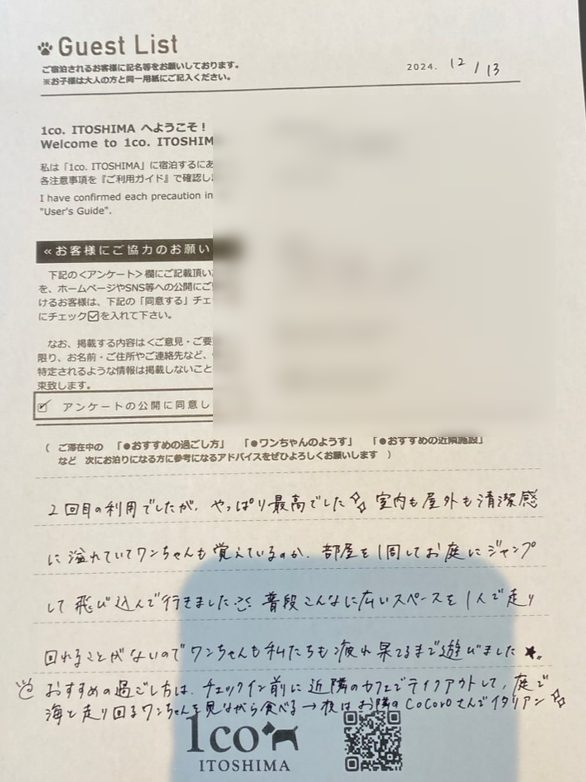 Guest List
ご宿泊されるお客様に記名等をお願いしております。
※お子様は大人の方と同一用紙にご記入ください。
2024. 12 / 13
1co. ITOSHIMA へようこそ！
Welcome to 1co. ITOSHIM
私は「1co. ITOSHIMA」に宿泊するにあ
各注意事項を『ご利用ガイド』で確認し
I have confirmed each precaution in
"User's Guide".
≪お客様にご協力のお願い
下記の＜アンケート＞欄にご記載頂い
を、ホームページやSNS等への公開にご
けるお客様は、下記の「同意する」チェ
にチェック☑を入れて下さい。
なお、掲載する内容は＜ご意見・ご要
限り、お名前・ご住所やご連絡先など、
特定されるような情報は掲載しないこと
束致します。
☑ アンケートの公開に同意し
（ ご滞在中の 「●おすすめの過ごし方」 「●ワンちゃんのようす」 「●おすすめの近隣施設」
など 次にお泊りになる方に参考になるアドバイスをぜひよろしくお願いします ）
2回目の利用でしたが、やっぱり最高でした 室内も屋外も清潔感
に溢れていてワンちゃんも覚えているのか、部屋を1周してお庭にジャンプ
して飛び込んで行きました 普段こんなに広いスペースを1人で走り
回れることがないのでワンちゃんも私たちも疲れ果てるまで遊びました★
おすすめの過ごし方は、チェックイン前に近隣のカフェでテイクアウトして、庭で
海と走り回るワンちゃんを見ながら食べる→夜はお隣のCoCoroさんでイタリアン
1co
ITOSHIMA